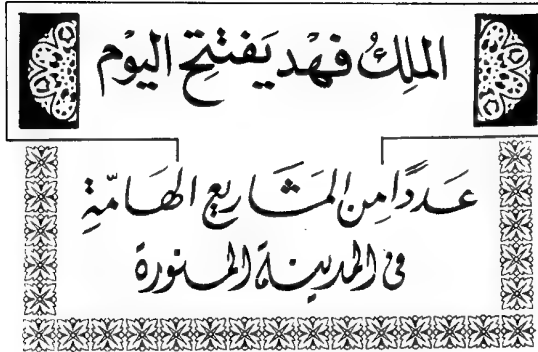 الملِكُ فهْد يَفتتِح اليوْم
عَددًا مِن المَشَاريع الهَامّةِ
في المدينة المنورة